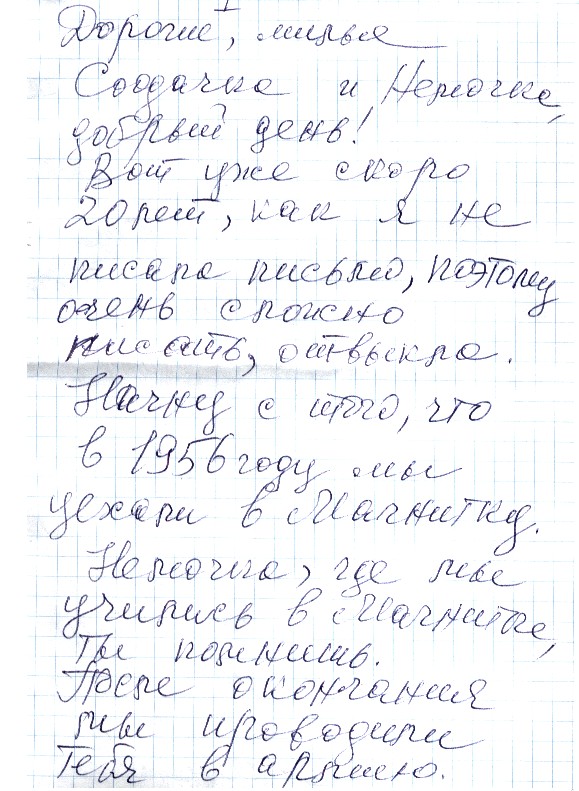 Дорогие, милые
Соодачка и Немочка,
добрый день!
Вот уже скоро
20 лет, как я не
писала письмо, поэтому
очень сложно
писать, отвыкла.
Начну с того, что
в 1956 году мы
уехали в Магнитку.
Немочка, где мы
учились в Магнитке,
ты помнишь.
После окончания
мы проводили
тебя в армию.